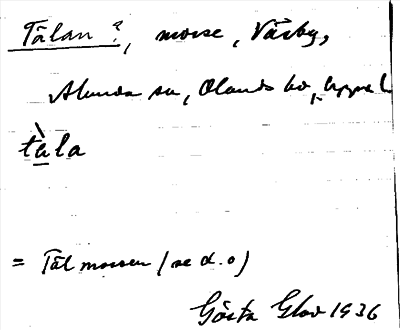 Tålan ?, mosse, Väsby,
Alunda sn, Olands hd, Uppsal
tà̱la
= Tålmossen (se d. o)
Gösta Glad 1936